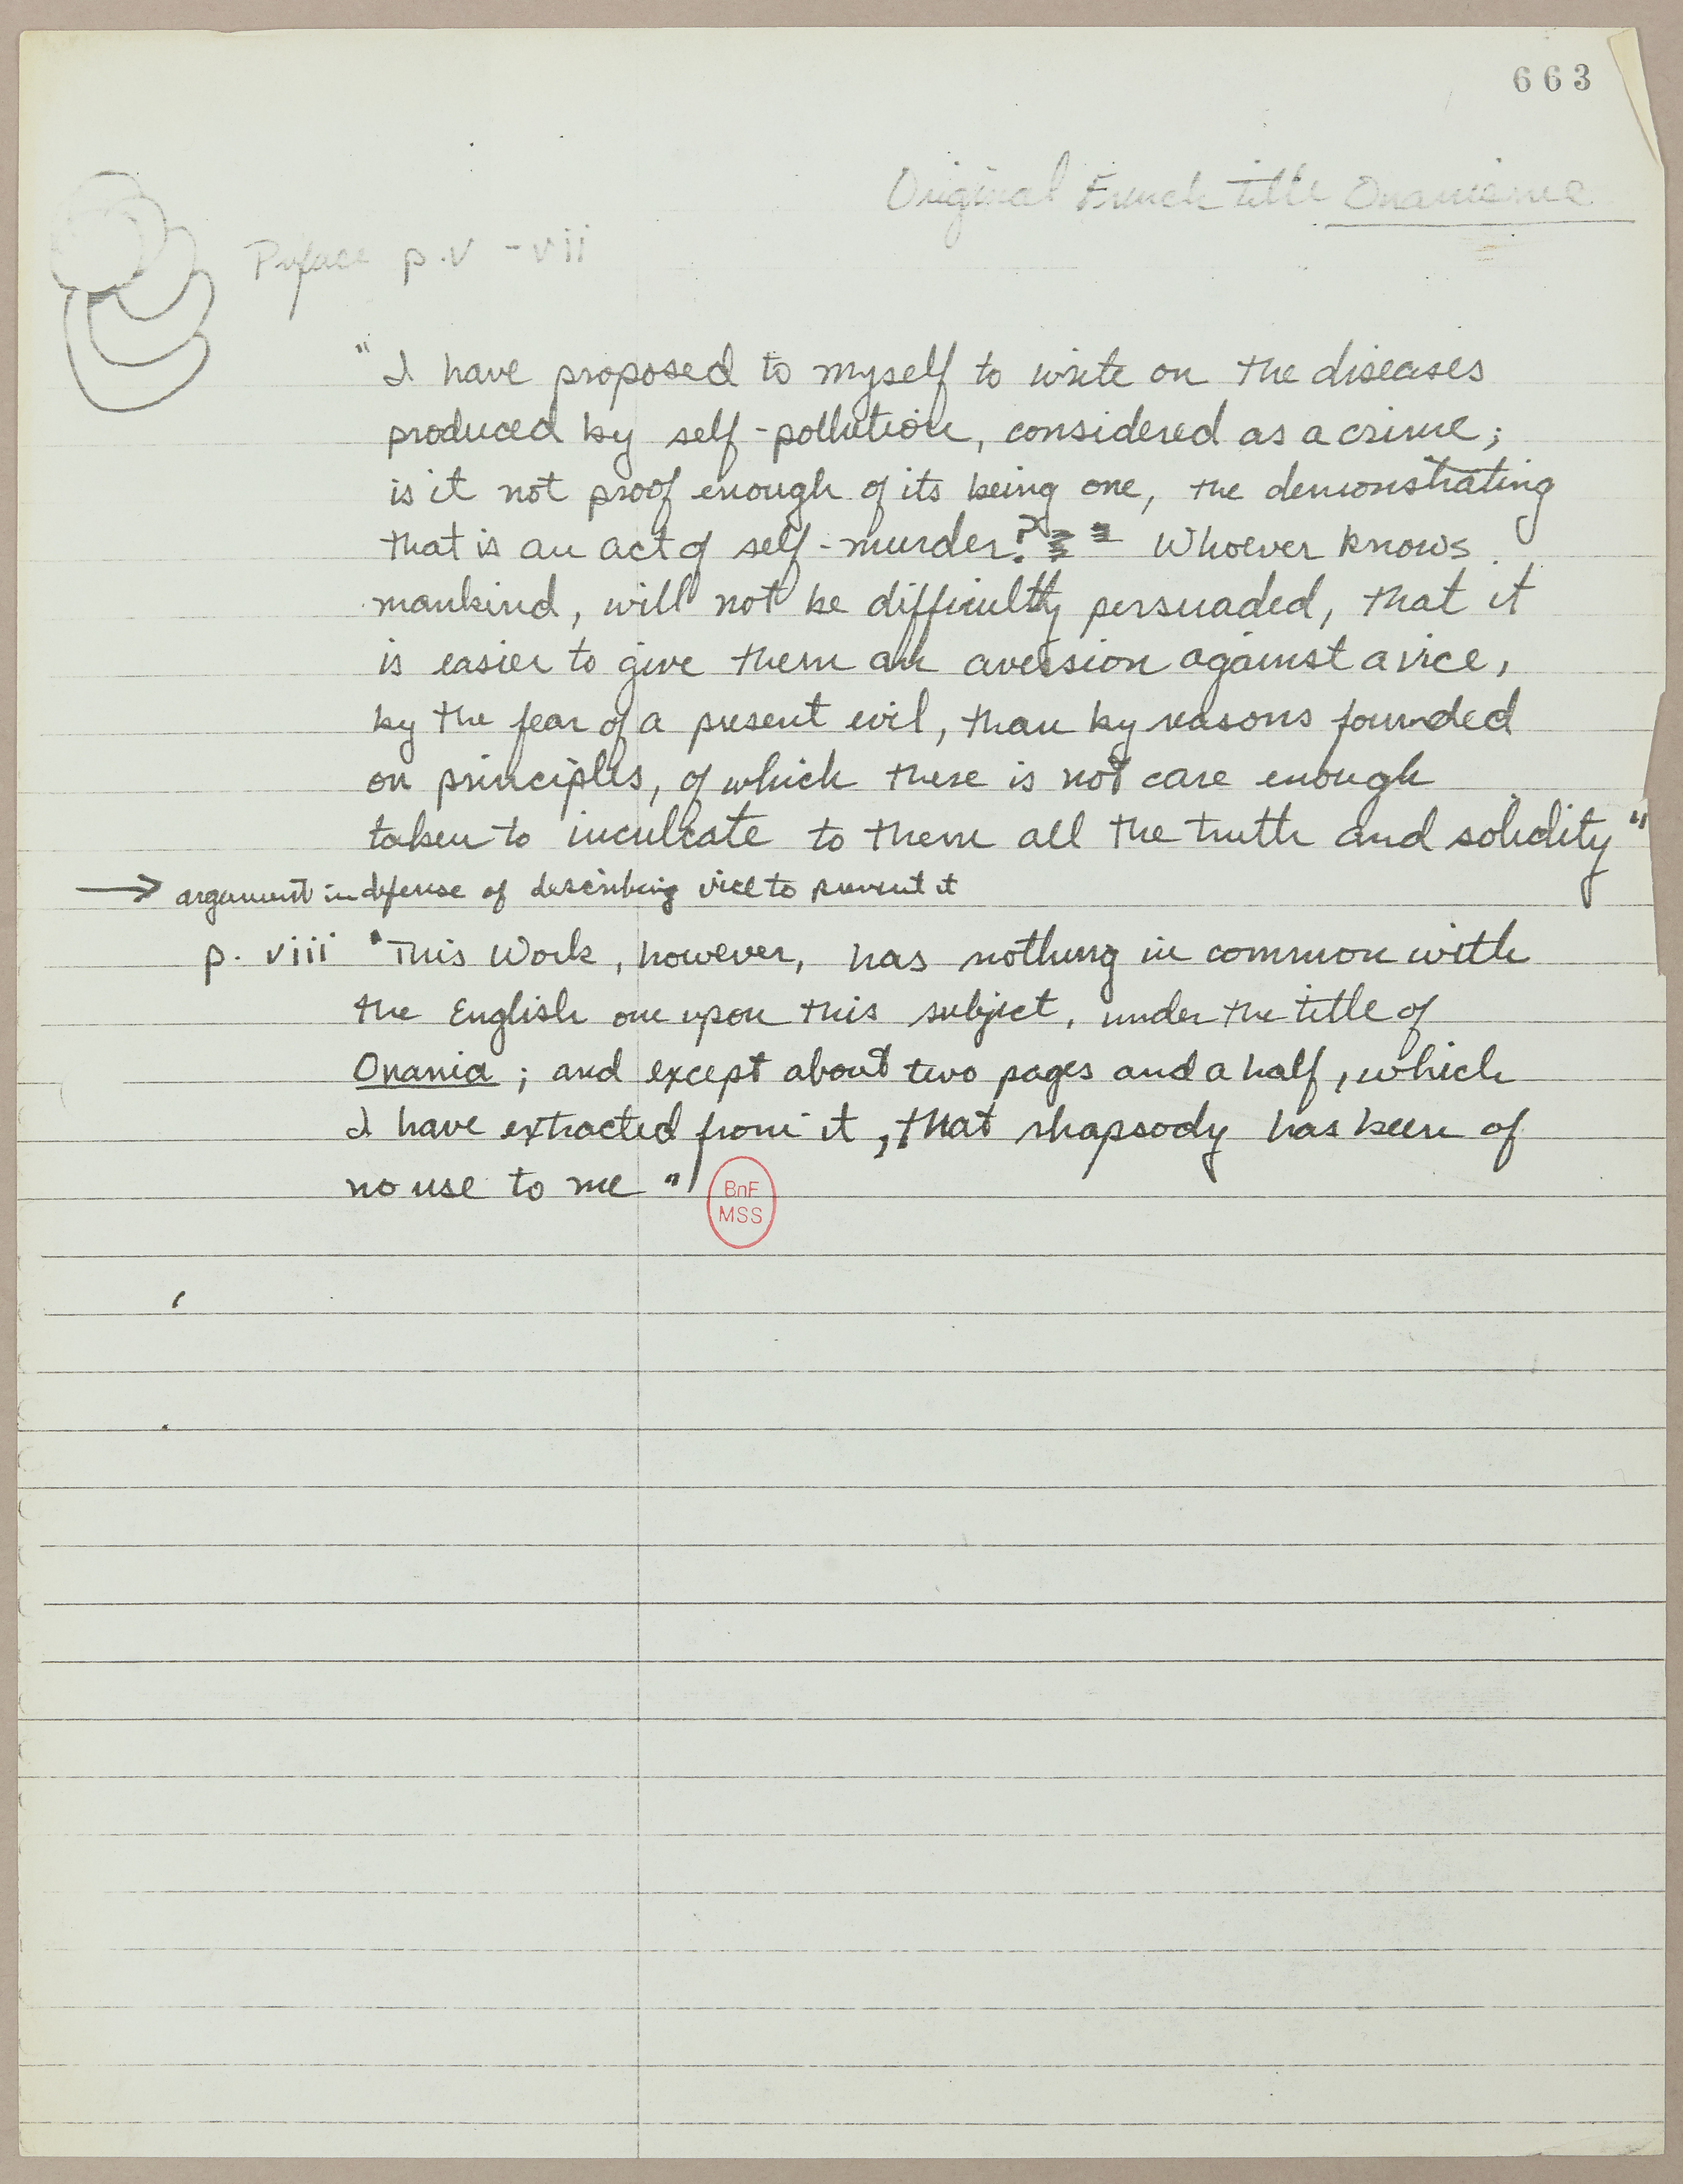 663
Original French title Onanisme
Preface p. v - vii
"I have proposed to myself to write on the diseases
produced by self-pollution, considered as a crime;
is it not proof enough of its being one, the demonstrating
that is an act of self-murder? Whoever knows
mankind, will not be difficultly persuaded, that it
is easier to give them an aversion against a vice,
by the fear of a present evil, than by reasons founded
on principles, of which there is not care enough
taken to inculcate to them all the truth and solidity"
→ argument in defense of describing vice to prevent it
p. viii "This Work, however, has nothing in common with
the English one upon this subject, under the title of
Onania; and except about two pages and a half, which
I have extracted from it, that rhapsody has been of
no use to me"
BnF
MSS